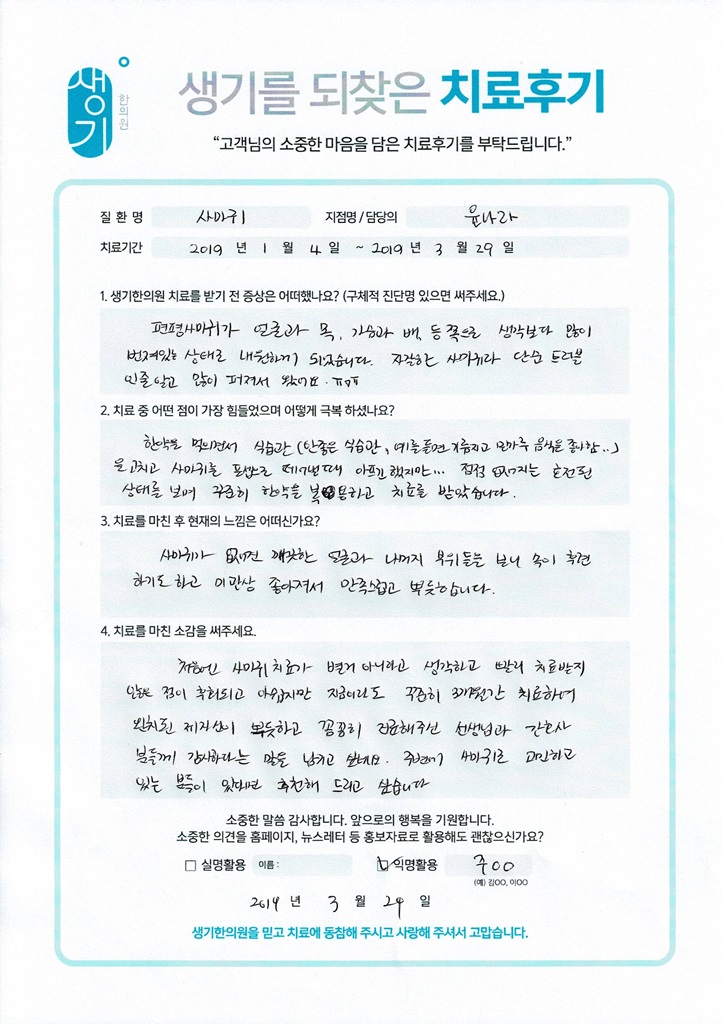 생기
한의원
생기를 되찾은 치료후기
“고객님의 소중한 마음을 담은 치료후기를 부탁드립니다.”
질 환 명 사마귀 지점명 / 담당의 윤나라
치료기간 2019 년 1 월 4 일 ~ 2019 년 3 월 29 일
1. 생기한의원 치료를 받기 전 증상은 어떠했나요? (구체적 진단명 있으면 써주세요.)
편평사마귀가 얼굴과 목, 가슴과 배, 등쪽으로 생각보다 많이
번져있는 상태로 내원하게 되었습니다. 자각하는 사마귀라 단순 트러블
인줄 알고 많이 퍼져서 왔어요. ㅠㅠ
2. 치료 중 어떤 점이 가장 힘들었으며 어떻게 극복 하셨나요?
한약을 먹으면서 식습관 (안좋은 식습관, 예를들면 기름지고 밀가루 음식을 좋아함..)
을 고치고 사마귀를 포셉으로 떼어낼때 아프긴했지만... 점점 없어지는 호전된
상태를 보며 꾸준히 한약을 복용하고 치료를 받았습니다.
3. 치료를 마친 후 현재의 느낌은 어떠신가요?
사마귀가 없어진 깨끗한 얼굴과 나머지 부위들을 보니 속이 후련
하기도하고 이만상 좋아져서 만족스럽고 뿌듯합니다.
4. 치료를 마친 소감을 써주세요.
처음엔 사마귀 치료가 별거 아니라고 생각하고 빨리 치료받지
않은 점이 후회되고 아쉽지만 지금이라도 꾸준히 3개월간 치료하여
완치된 제자신이 뿌듯하고 꼼꼼히 진료해주신 선생님과 간호사
분들께 감사하다는 말을 남기고 싶네요. 주변에 사마귀로 고민하고
있는 분들이 있다면 추천해 드리고 싶습니다
소중한 말씀 감사합니다. 앞으로의 행복을 기원합니다.
소중한 의견을 홈페이지, 뉴스레터 등 홍보자료로 활용해도 괜찮으신가요?
실명활용 이름 : 익명활용 주OO
(예) 김OO, 이OO
2019 년 3 월 29 일
생기한의원을 믿고 치료에 동참해 주시고 사랑해 주셔서 고맙습니다.